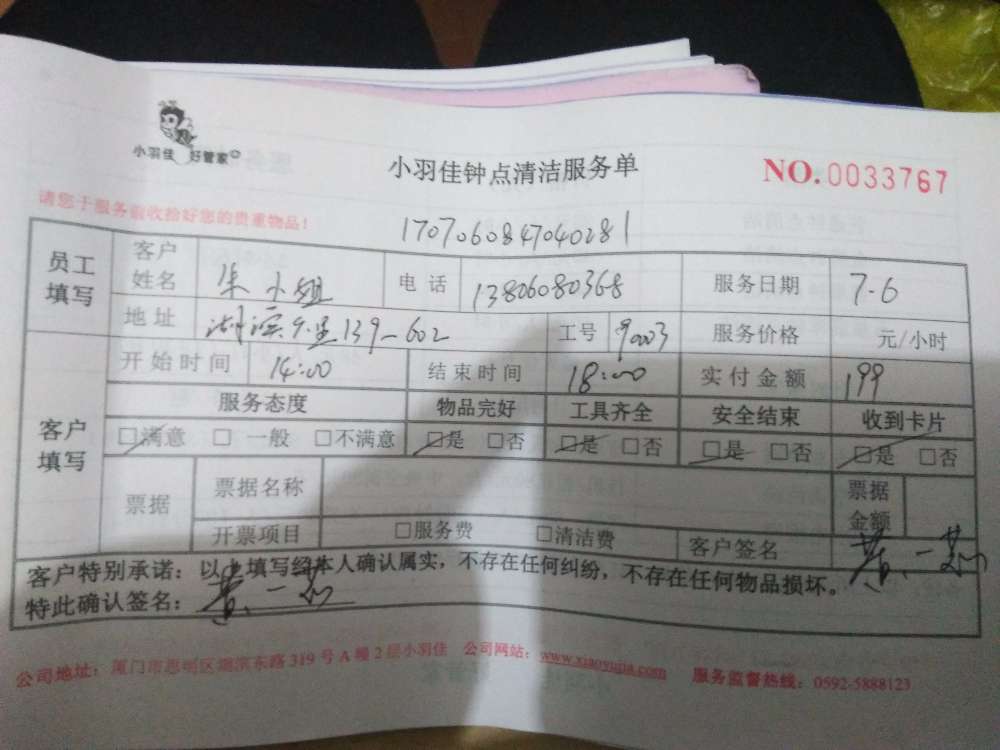 小羽佳 好管家
小羽佳钟点清洁服务单
NO.0033767
请您于服务前收拾好您的贵重物品!
1707060847040281
员工填写 客户姓名 朱小姐 电话 13806080368 服务日期 7-6
地址 湖滨 139-602 工号 9003 服务价格 元/小时
客户填写 开始时间 14:00 结束时间 18:00 实付金额 199
服务态度 物品完好 工具齐全 安全结束 收到卡片
☑满意 □一般 □不满意 ☑是 □否 ☑是 □否 ☑是 □否 ☑是 □否
票据 票据名称 票据金额
开票项目 □服务费 □清洁费 客户签名 黄一
客户特别承诺:以上填写经本人确认属实,不存在任何纠纷,不存在任何物品损坏。
特此确认签名:黄一
公司地址:厦门市思明区湖滨东路319号A幢2层小羽佳 公司网站:www.xiaoyujia.com 服务监督热线:0592-5888123